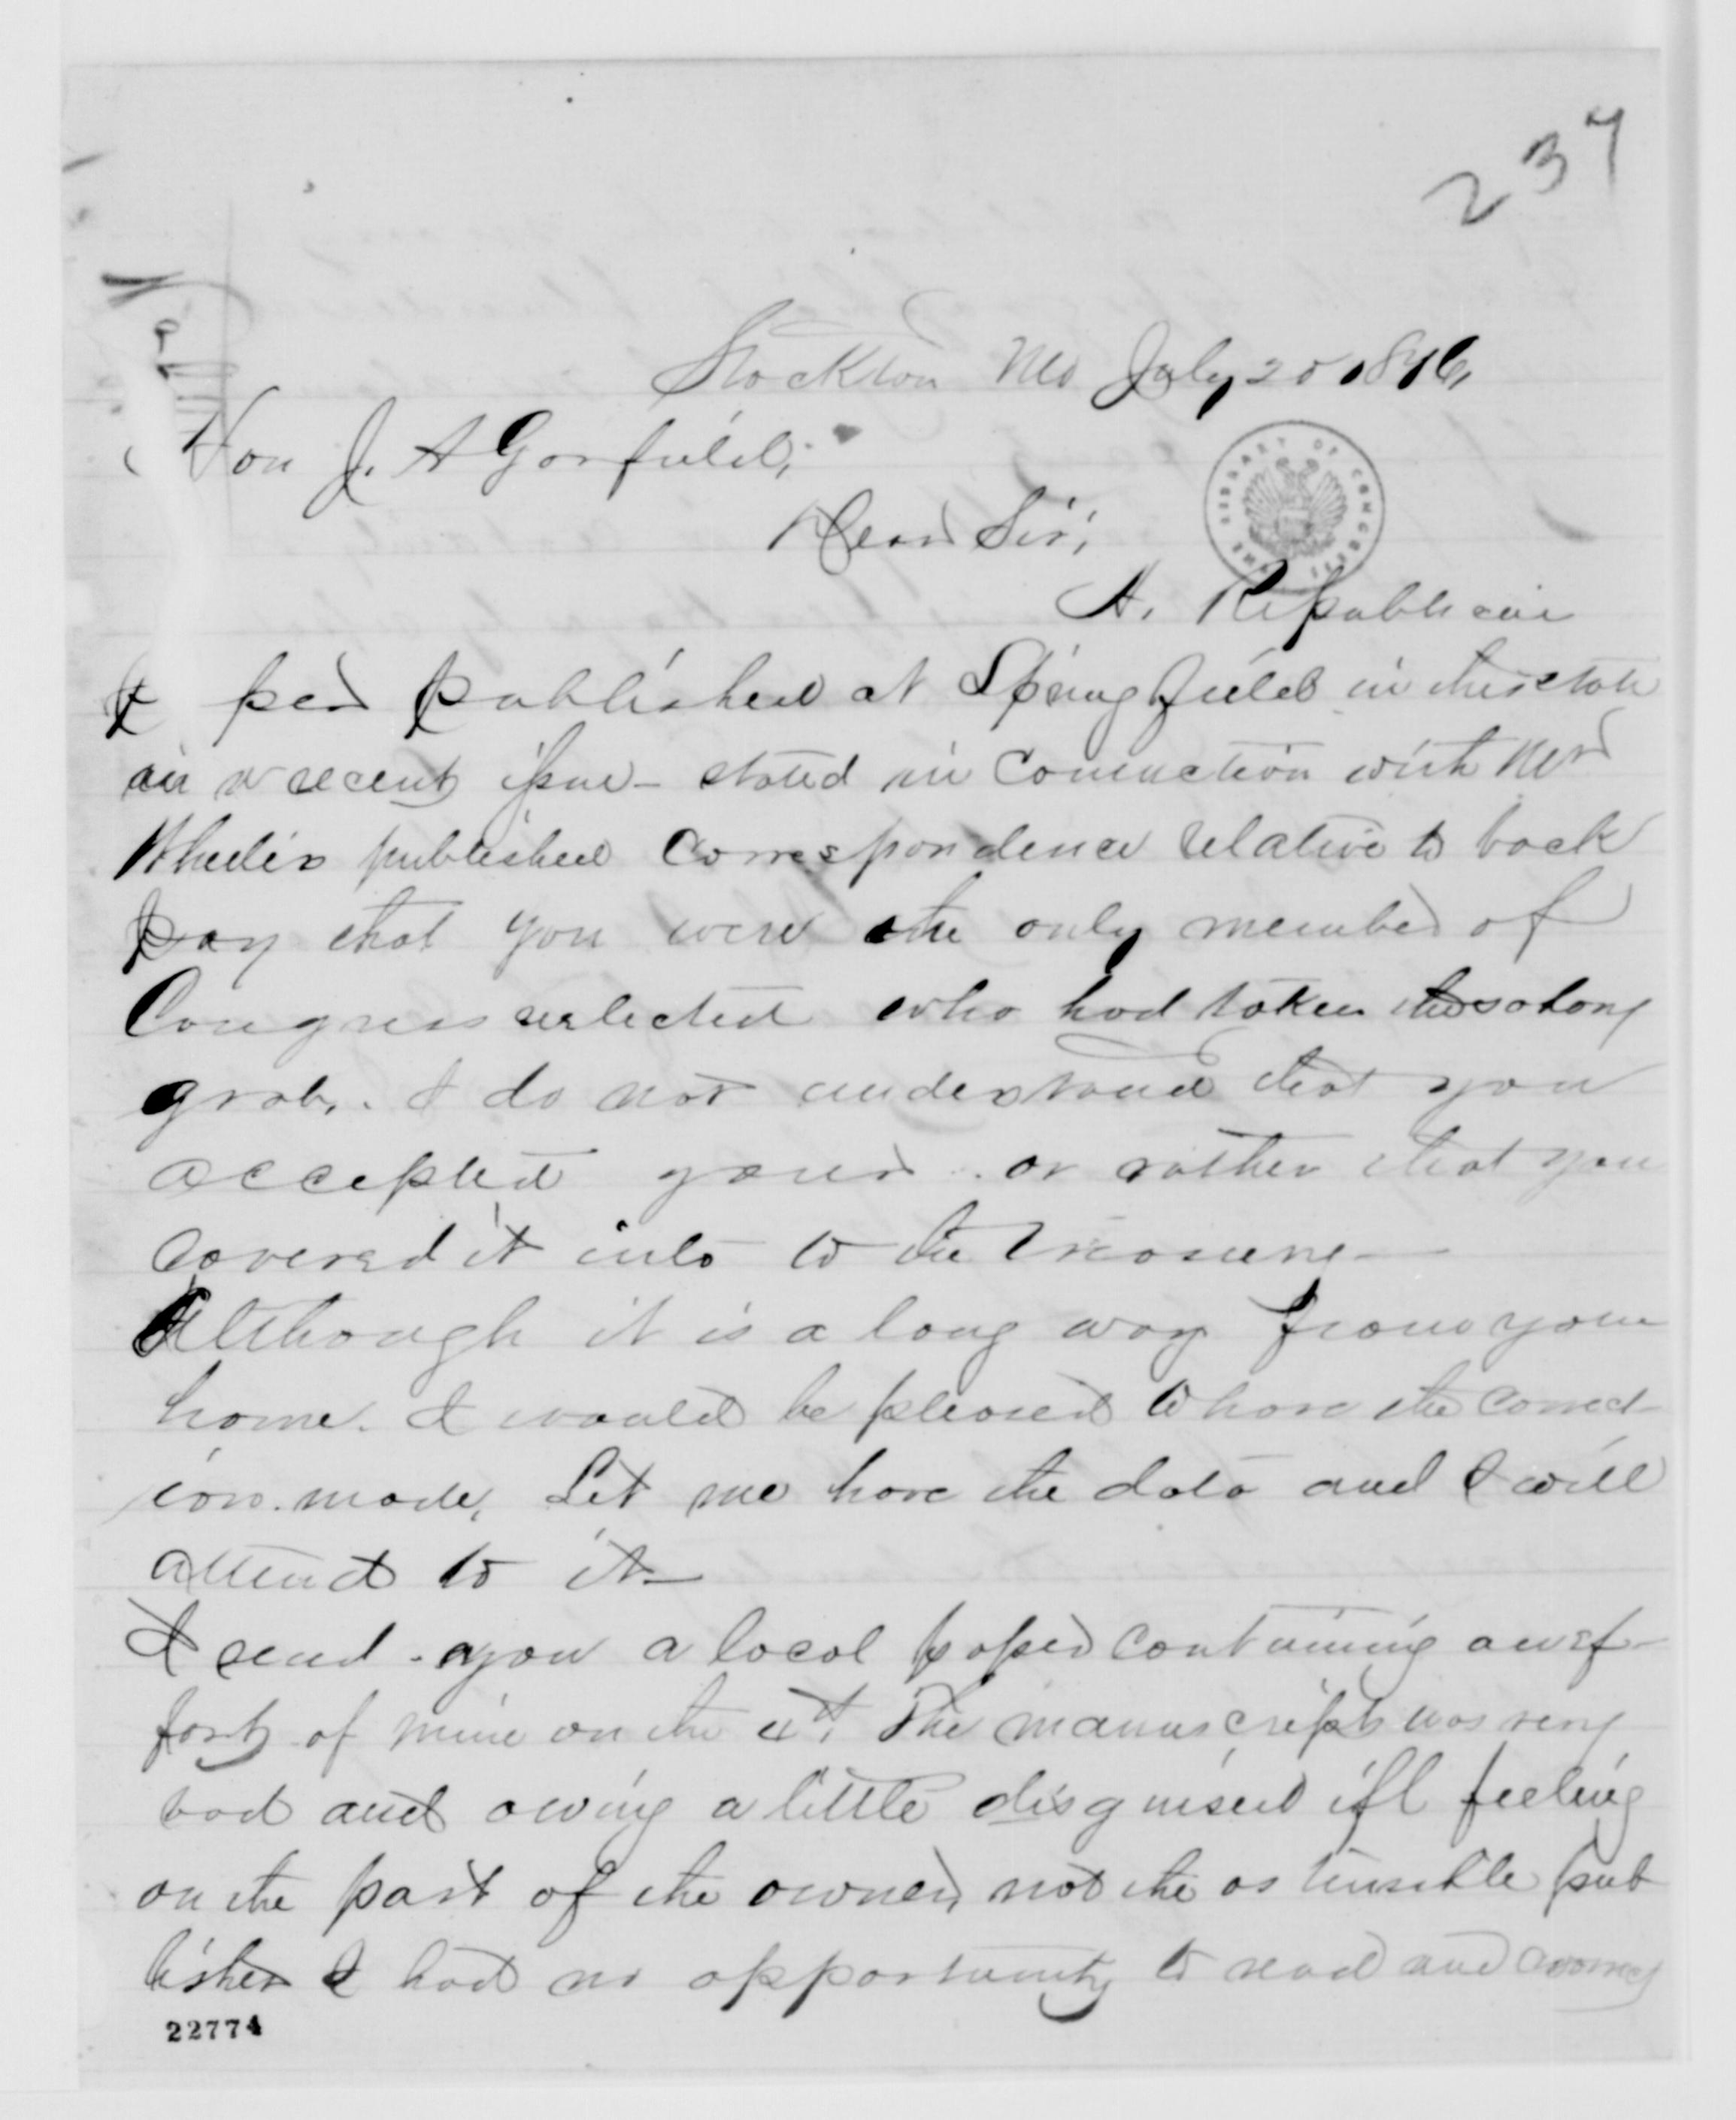 237
Stockton Mo July 20 1876,
Hon J. A Garfield;
Dear Sir;
THE LIBRARY OF CONGRESS
A. Republican
per published at Springfield in this state
in a recent issue - stated in connection with Mr
Wheelers published correspondence relative to back
pay that you were the only member of
Congress relected who had taken the salary
grab. I do not understand that you
accepted yours. or rather that you
covered it into to the Treasury
Although it is a long way from your
home. I would be pleased to have the correct-
ion made. Let me have the data and I will
attend to it -
I send you a local paper containing an ef-
fort of mine on the 4th. The manuscript was very
bad and owing a little disguised ill feeling
on the part of the owner, not the ostensible pub
lisher I had no opportunity to read and correct
22774